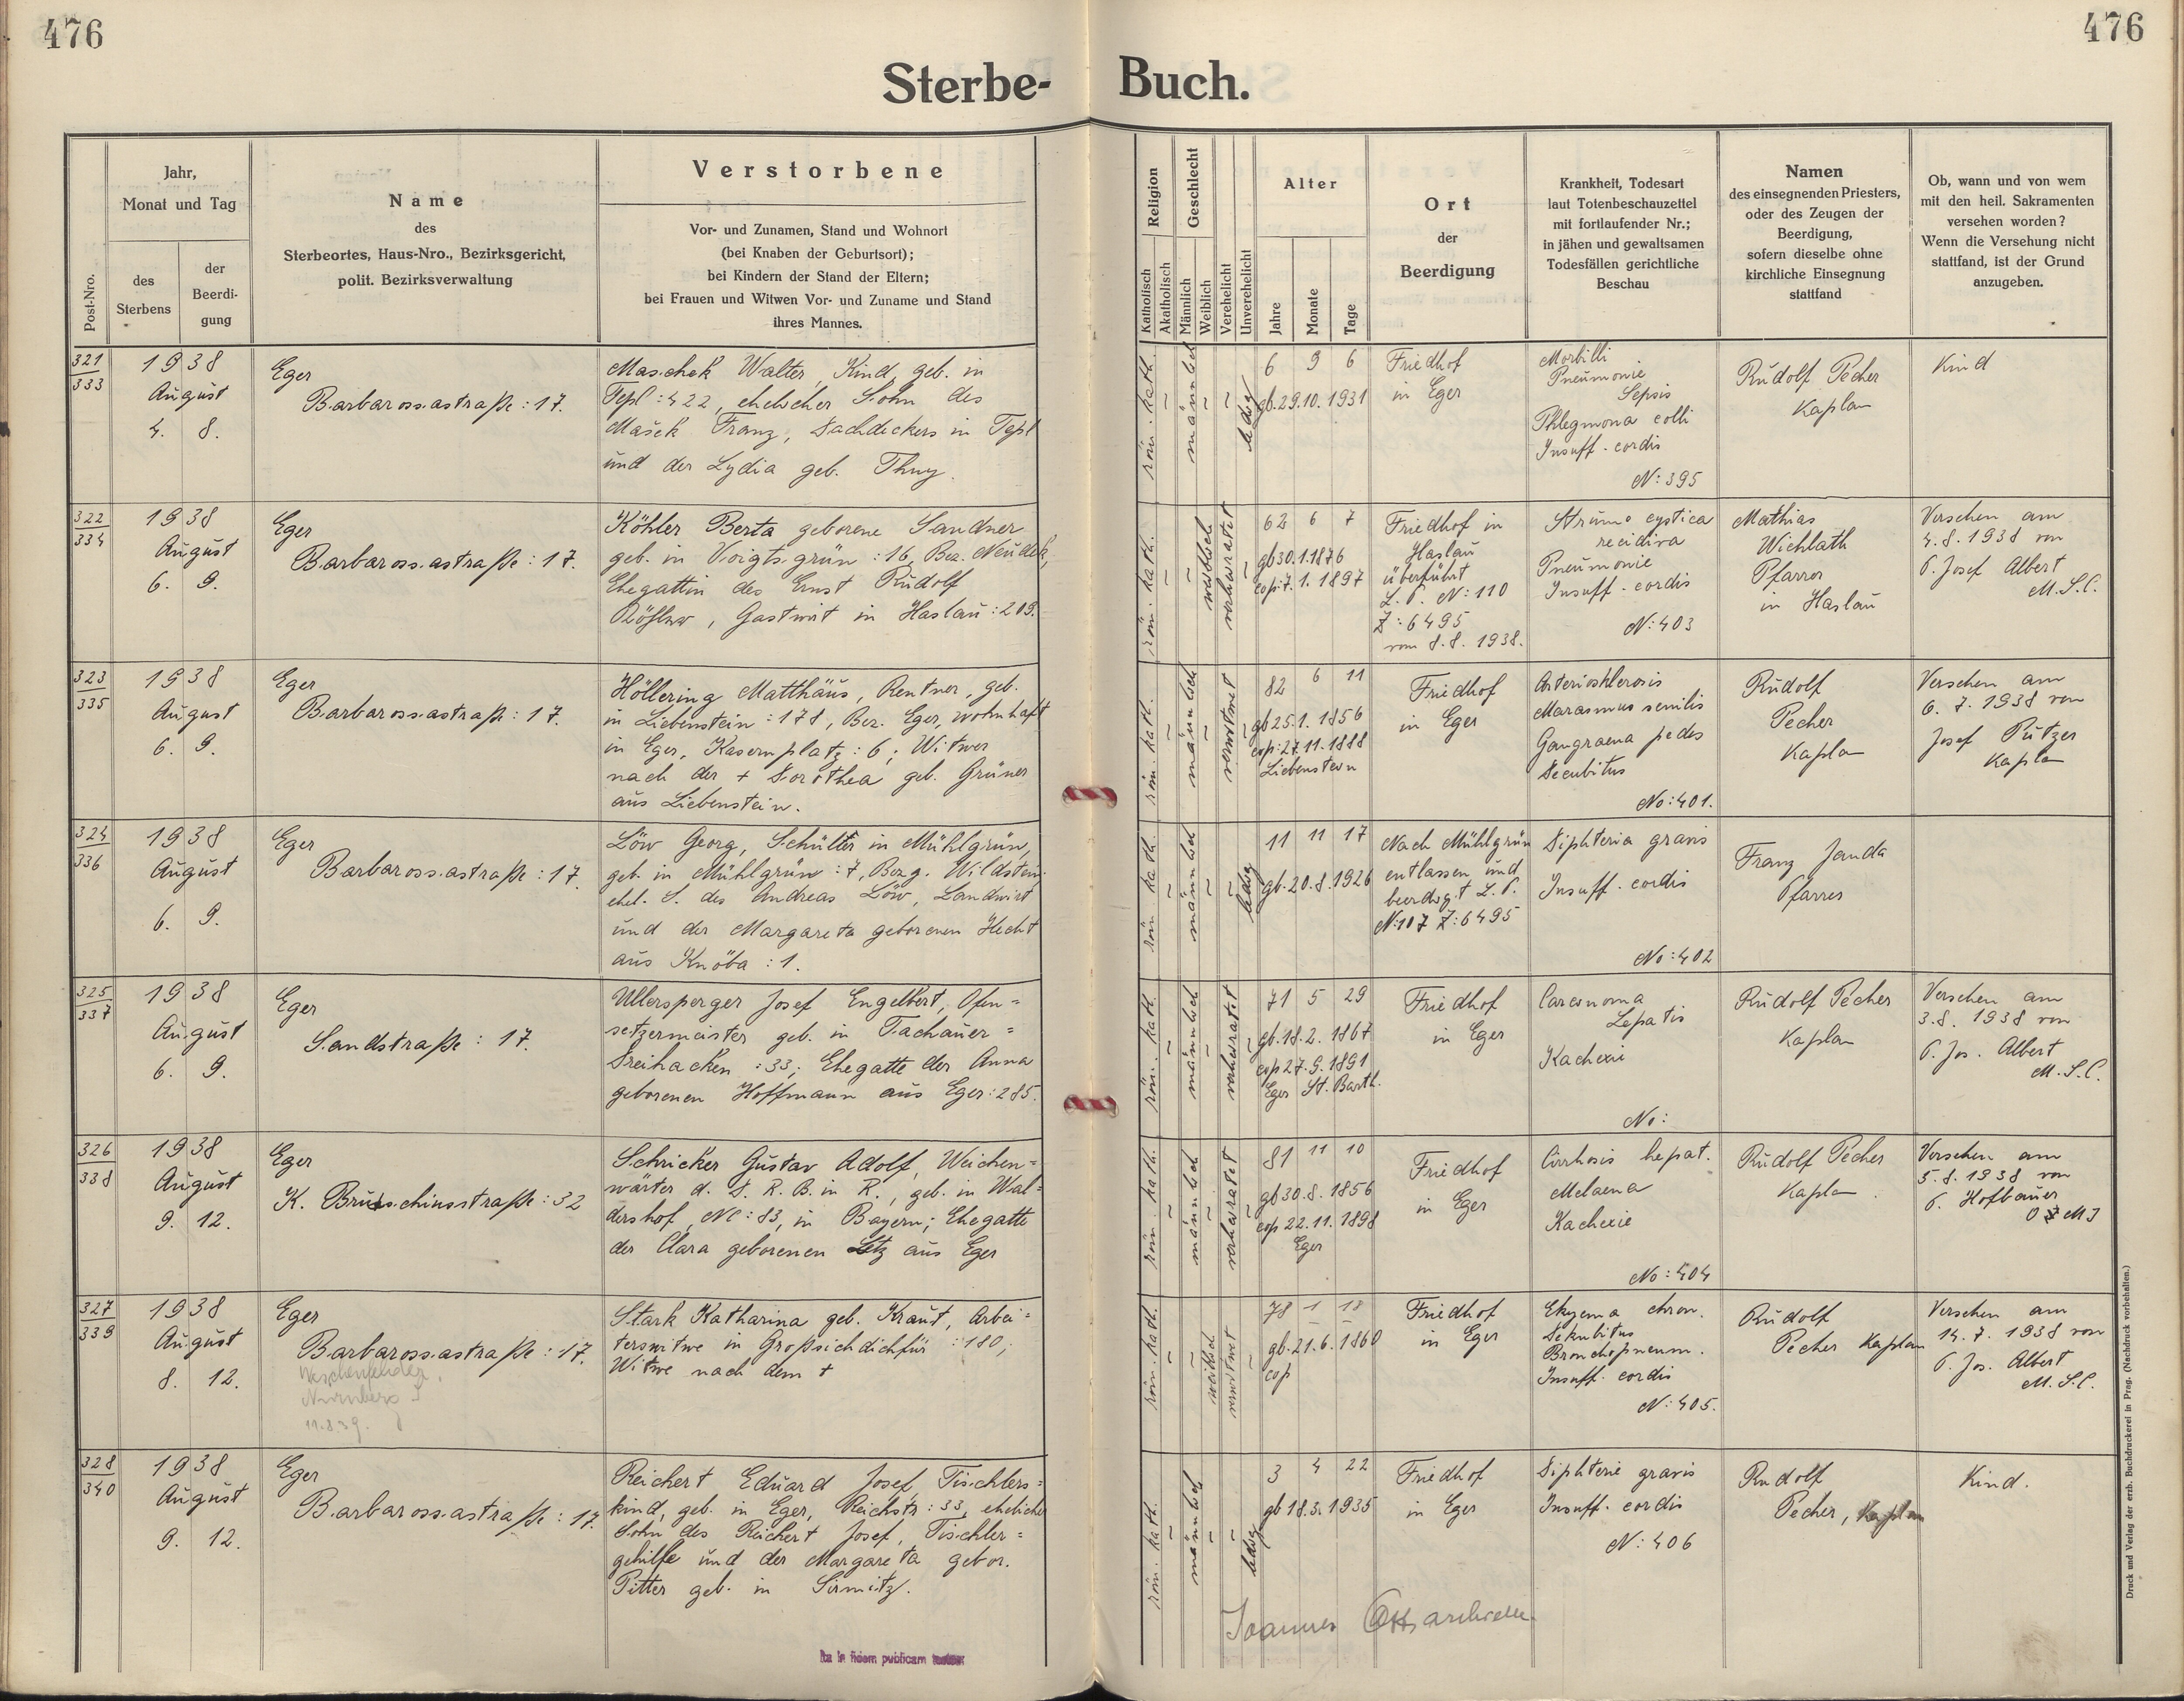 476
476
Sterbe-Buch.
Post-Nro.
Jahr,
Monat und Tag
des
Sterbens
der
Beerdi-
gung
Name
des
Sterbeortes, Haus-Nro., Bezirksgericht,
polit. Bezirksverwaltung
Verstorbene
Vor- und Zunamen, Stand und Wohnort
(bei Knaben der Geburtsort);
bei Kindern der Stand der Eltern;
bei Frauen und Witwen Vor- und Zuname und Stand
ihres Mannes.
Religion
Katholisch
Akatholisch
Geschlecht
Männlich
Weiblich
Verehelicht
Unverehelicht
Alter
Jahre
Monate
Tage
Ort
der
Beerdigung
Krankheit, Todesart
laut Totenbeschauzettel
mit fortlaufender Nr.;
in jähen und gewaltsamen
Todesfällen gerichtliche
Beschau
Namen
des einsegnenden Priesters,
oder des Zeugen der
Beerdigung,
sofern dieselbe ohne
kirchliche Einsegnung
stattfand
Ob, wann und von wem
mit den heil. Sakramenten
versehen worden?
Wenn die Versehung nicht
stattfand, ist der Grund
anzugeben.
321
333
1938
August
4. 8.
Eger
Barbarossastraße: 17.
Maschek Walter, Kind, geb. in
Tepl: 422, ehelicher Sohn des
Mašek Franz, Dachdeckers in Tepl
und der Lydia geb. Thuy.
röm. kath.
männlich
ledig
6 9 6
gb. 29.10.1931
Friedhof
in Eger
Morbilli
Pneumonie
Sepsis
Phlegmona colli
Insuff. cordis
N: 395
Rudolf Pecher
Kaplan
Kind
322
334
1938
August
6. 9.
Eger
Barbarossastraße: 17.
Köhler Berta geborene Sandner
geb. in Voigtsgrün: 16, Bez. Neudek,
Ehegattin des Ernst Rudolf
Köhler, Gastwirt in Haslau: 209.
röm. kath.
weiblich
verheiratet
62 6 7
gb 30.1.1876
cop: 7.1.1897
Friedhof in
Haslau
überführt
L. P. N: 110
Z: 6495
vom 8.8.1938.
Struma cystica
recidiva
Pneumonie
Insuff. cordis
N: 403
Mathias
Wichlath
Pfarrer
in Haslau
Versehen am
4.8.1938 von
P. Josef Albert
M.S.C.
323
335
1938
August
6. 9.
Eger
Barbarossastraße: 17.
Höllering Matthäus, Rentner, geb.
in Liebenstein: 178, Bez. Eger, wohnhaft
in Eger, Kasernplatz: 6; Witwer
nach der + Dorothea geb. Grüner
aus Liebenstein.
röm. kath.
männlich
verwitwet
82 6 11
gb 25.1.1856
cop: 27.11.1888
Liebenstein
Friedhof
in Eger
Arteriosklerosis
Marasmus senilis
Gangraena pedes
Decubitus
No: 401.
Rudolf
Pecher
Kaplan
Versehen am
6.7.1938 von
Josef Pützer
Kaplan
324
336
1938
August
6. 9.
Eger
Barbarossastraße: 17.
Löw Georg, Schüler in Mühlgrün,
geb. in Mühlgrün: 7, Bez. Wildstein
ehel. S. des Andreas Löw, Landwirt
und der Margareta geborenen Hecht
aus Knöba: 1.
röm. kath.
männlich
ledig
11 11 17
gb. 20.8.1926
Nach Mühlgrün
entlassen und
beerdigt L. P.
N: 107 Z: 6495
Diphteria gravis
Insuff. cordis
No: 402
Franz Janda
Pfarrer
325
337
1938
August
6. 9.
Eger
Sandstraße: 17.
Ullersperger Josef Engelbert, Ofen=
setzermeister geb. in Tachauer=
Dreihacken: 33; Ehegatte der Anna
geborenen Hoffmann aus Eger: 285.
röm. kath.
männlich
verheiratet
71 5 29
gb. 18.2.1867
cop 27.9.1891
Eger St. Barth.
Friedhof
in Eger
Carcinoma
Lepatis
Kachexie
No:
Rudolf Pecher
Kaplan
Versehen am
3.8.1938 von
P. Jos. Albert
M.S.C.
326
338
1938
August
9. 12.
Eger
K. Bruschiusstraße: 32
Schricker Gustav Adolf, Weichen=
wärter d. D. R. B. in R., geb. in Wal=
dershof, No: 83, in Bayern; Ehegatte
der Clara geborenen Letz aus Eger
röm. kath.
männlich
verheiratet
81 11 10
gb 30.8.1856
cop 22.11.1898
Eger
Friedhof
in Eger
Cirrhosis hepat.
Melaena
Kachexie
No: 404
Rudolf Pecher
Kaplan
Versehen am
5.8.1938 von
P. Hofbauer
327
339
1938
August
8. 12.
Eger
Barbarossastraße: 17.
Nürnberg
11.8.39.
Stark Katharina geb. Kraut, Arbei=
terswitwe in Großsichdichfür: 180;
Witwe nach dem +
röm. kath.
weiblich
verwitwet
78 1 18
gb. 21.6.1860
cop
Friedhof
in Eger
Ekzema chron.
Dekubitus
Bronchopneum.
Insuff. cordis
N: 405.
Rudolf
Pecher Kaplan
Versehen am
14.7.1938 von
P. Jos. Albert
M.S.C.
328
340
1938
August
9. 12.
Eger
Barbarossastraße: 17.
Reichert Eduard Josef, Tischlers=
kind, geb. in Eger, Reichstr: 33, ehelicher
Sohn des Reichert Josef, Tischler=
gehilfe und der Margareta gebor.
Pitter geb. in Sirmitz.
röm. kath.
männlich
ledig
3 4 22
gb 18.3.1935
Friedhof
in Eger
Diphterie gravis
Insuff. cordis
N: 406
Rudolf
Pecher, Kaplan
Kind.
Ita in fidem publicam
Druck und Verlag der erzb. Buchdruckerei in Prag. (Nachdruck vorbehalten.)